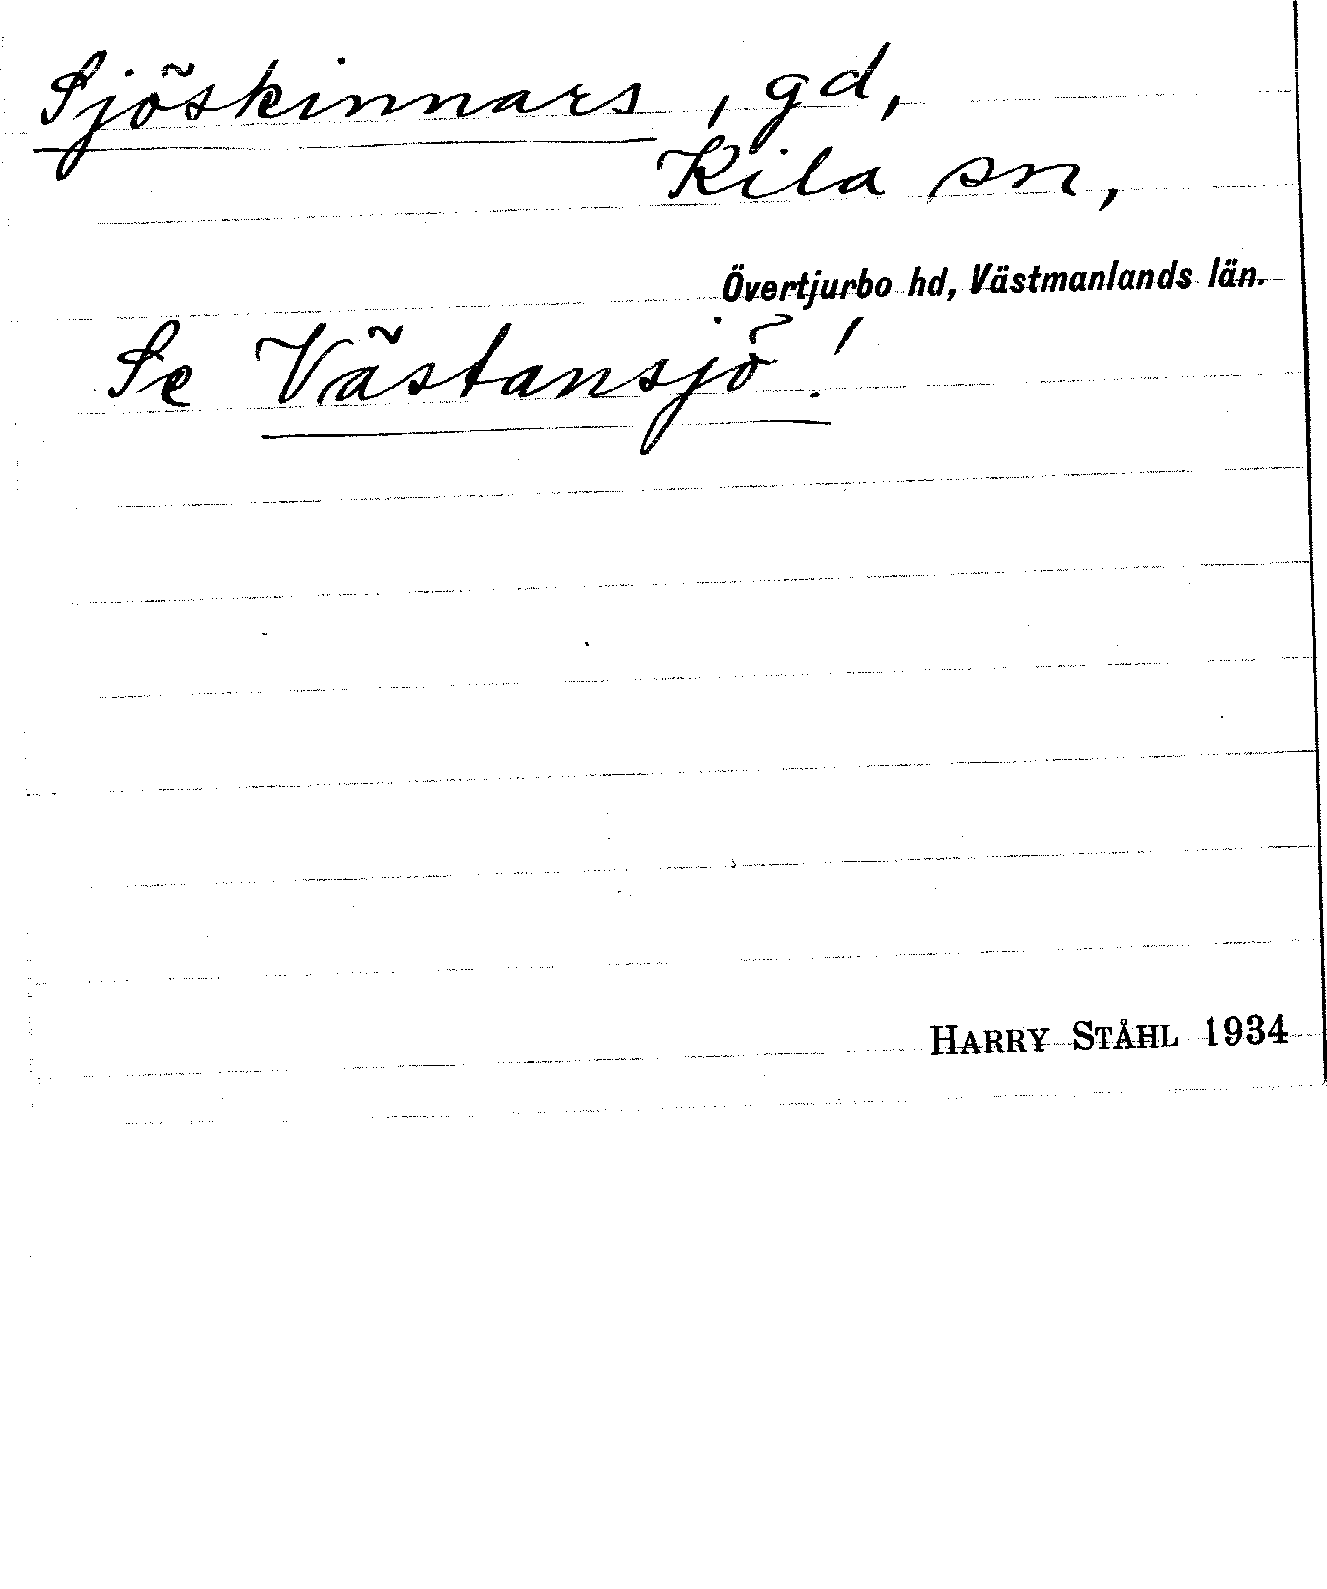 Sjöskinnars, gd,
Kila sn,
Övertjurbo hd, Västmanlands län.
Se Västansjö!
HARRY STÅHL 1934